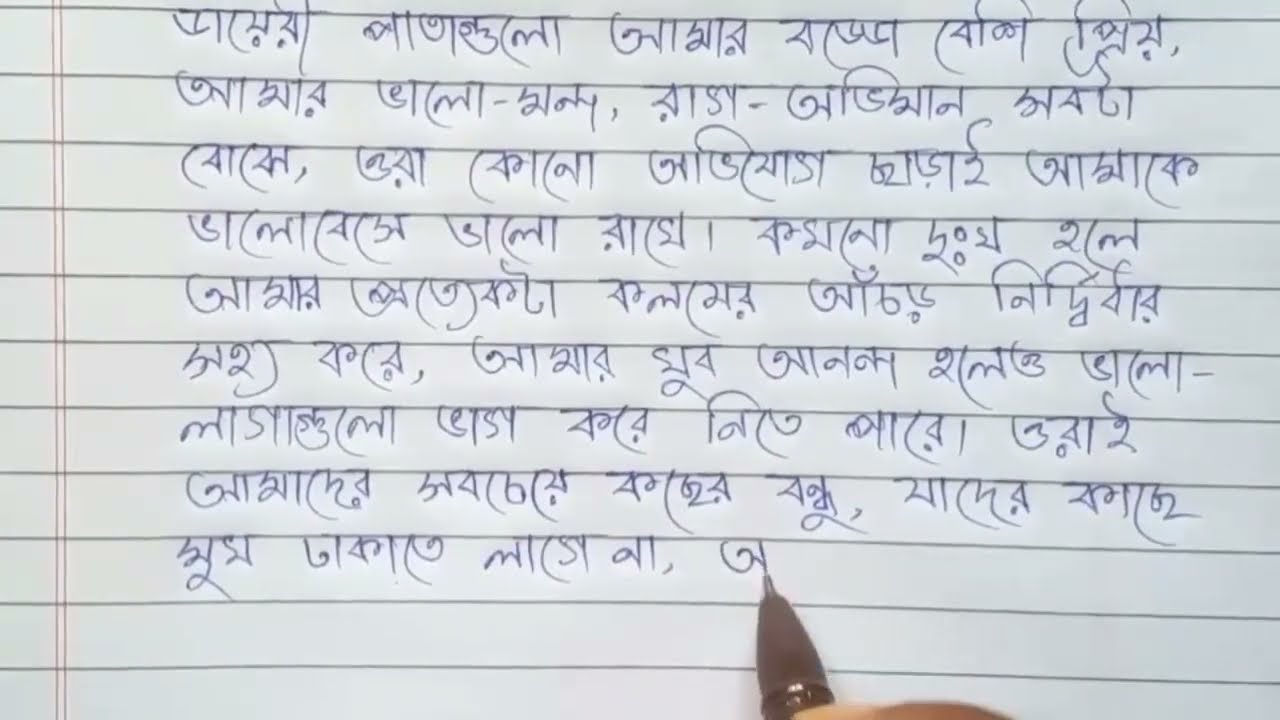 ডায়েরী পাতাগুলো আমার বড্ডো বেশি প্রিয়,
আমার ভালো-মন্দ, রাগ-অভিমান সবটা
বোঝে, ওরা কোনো অভিযোগ ছাড়াই আমাকে
ভালোবেসে ভালো রাখে। কখনো দুঃখ হলে
আমার প্রত্যেকটা কলমের আঁচড় নির্দ্বিধায়
সহ্য করে, আমার খুব আনন্দ হলেও ভালো-
লাগাগুলো ভাগ করে নিতে পারে। ওরাই
আমাদের সবচেয়ে কাছের বন্ধু, যাদের কাছে
মুখ ঢাকাতে লাগে না, অ